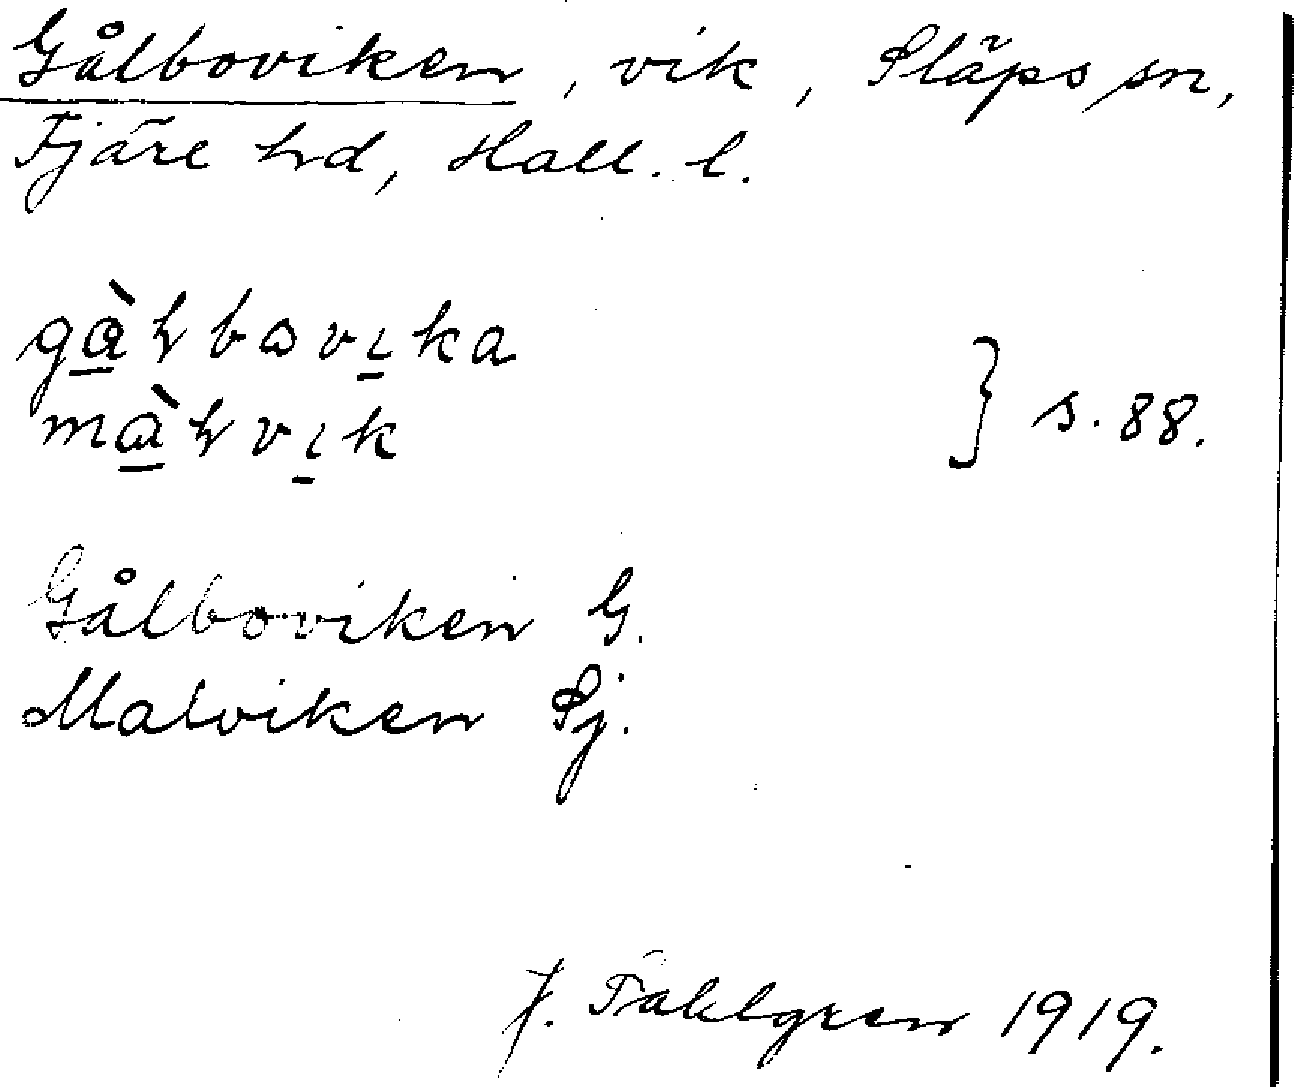 Gålboviken, vik, Släps sn,
Fjäre hd, Hall. l.
gàɧbɷvıka
màɧvık } s. 88.
Gålboviken G.
Malviken Sj.
J. Fahlgren 1919.